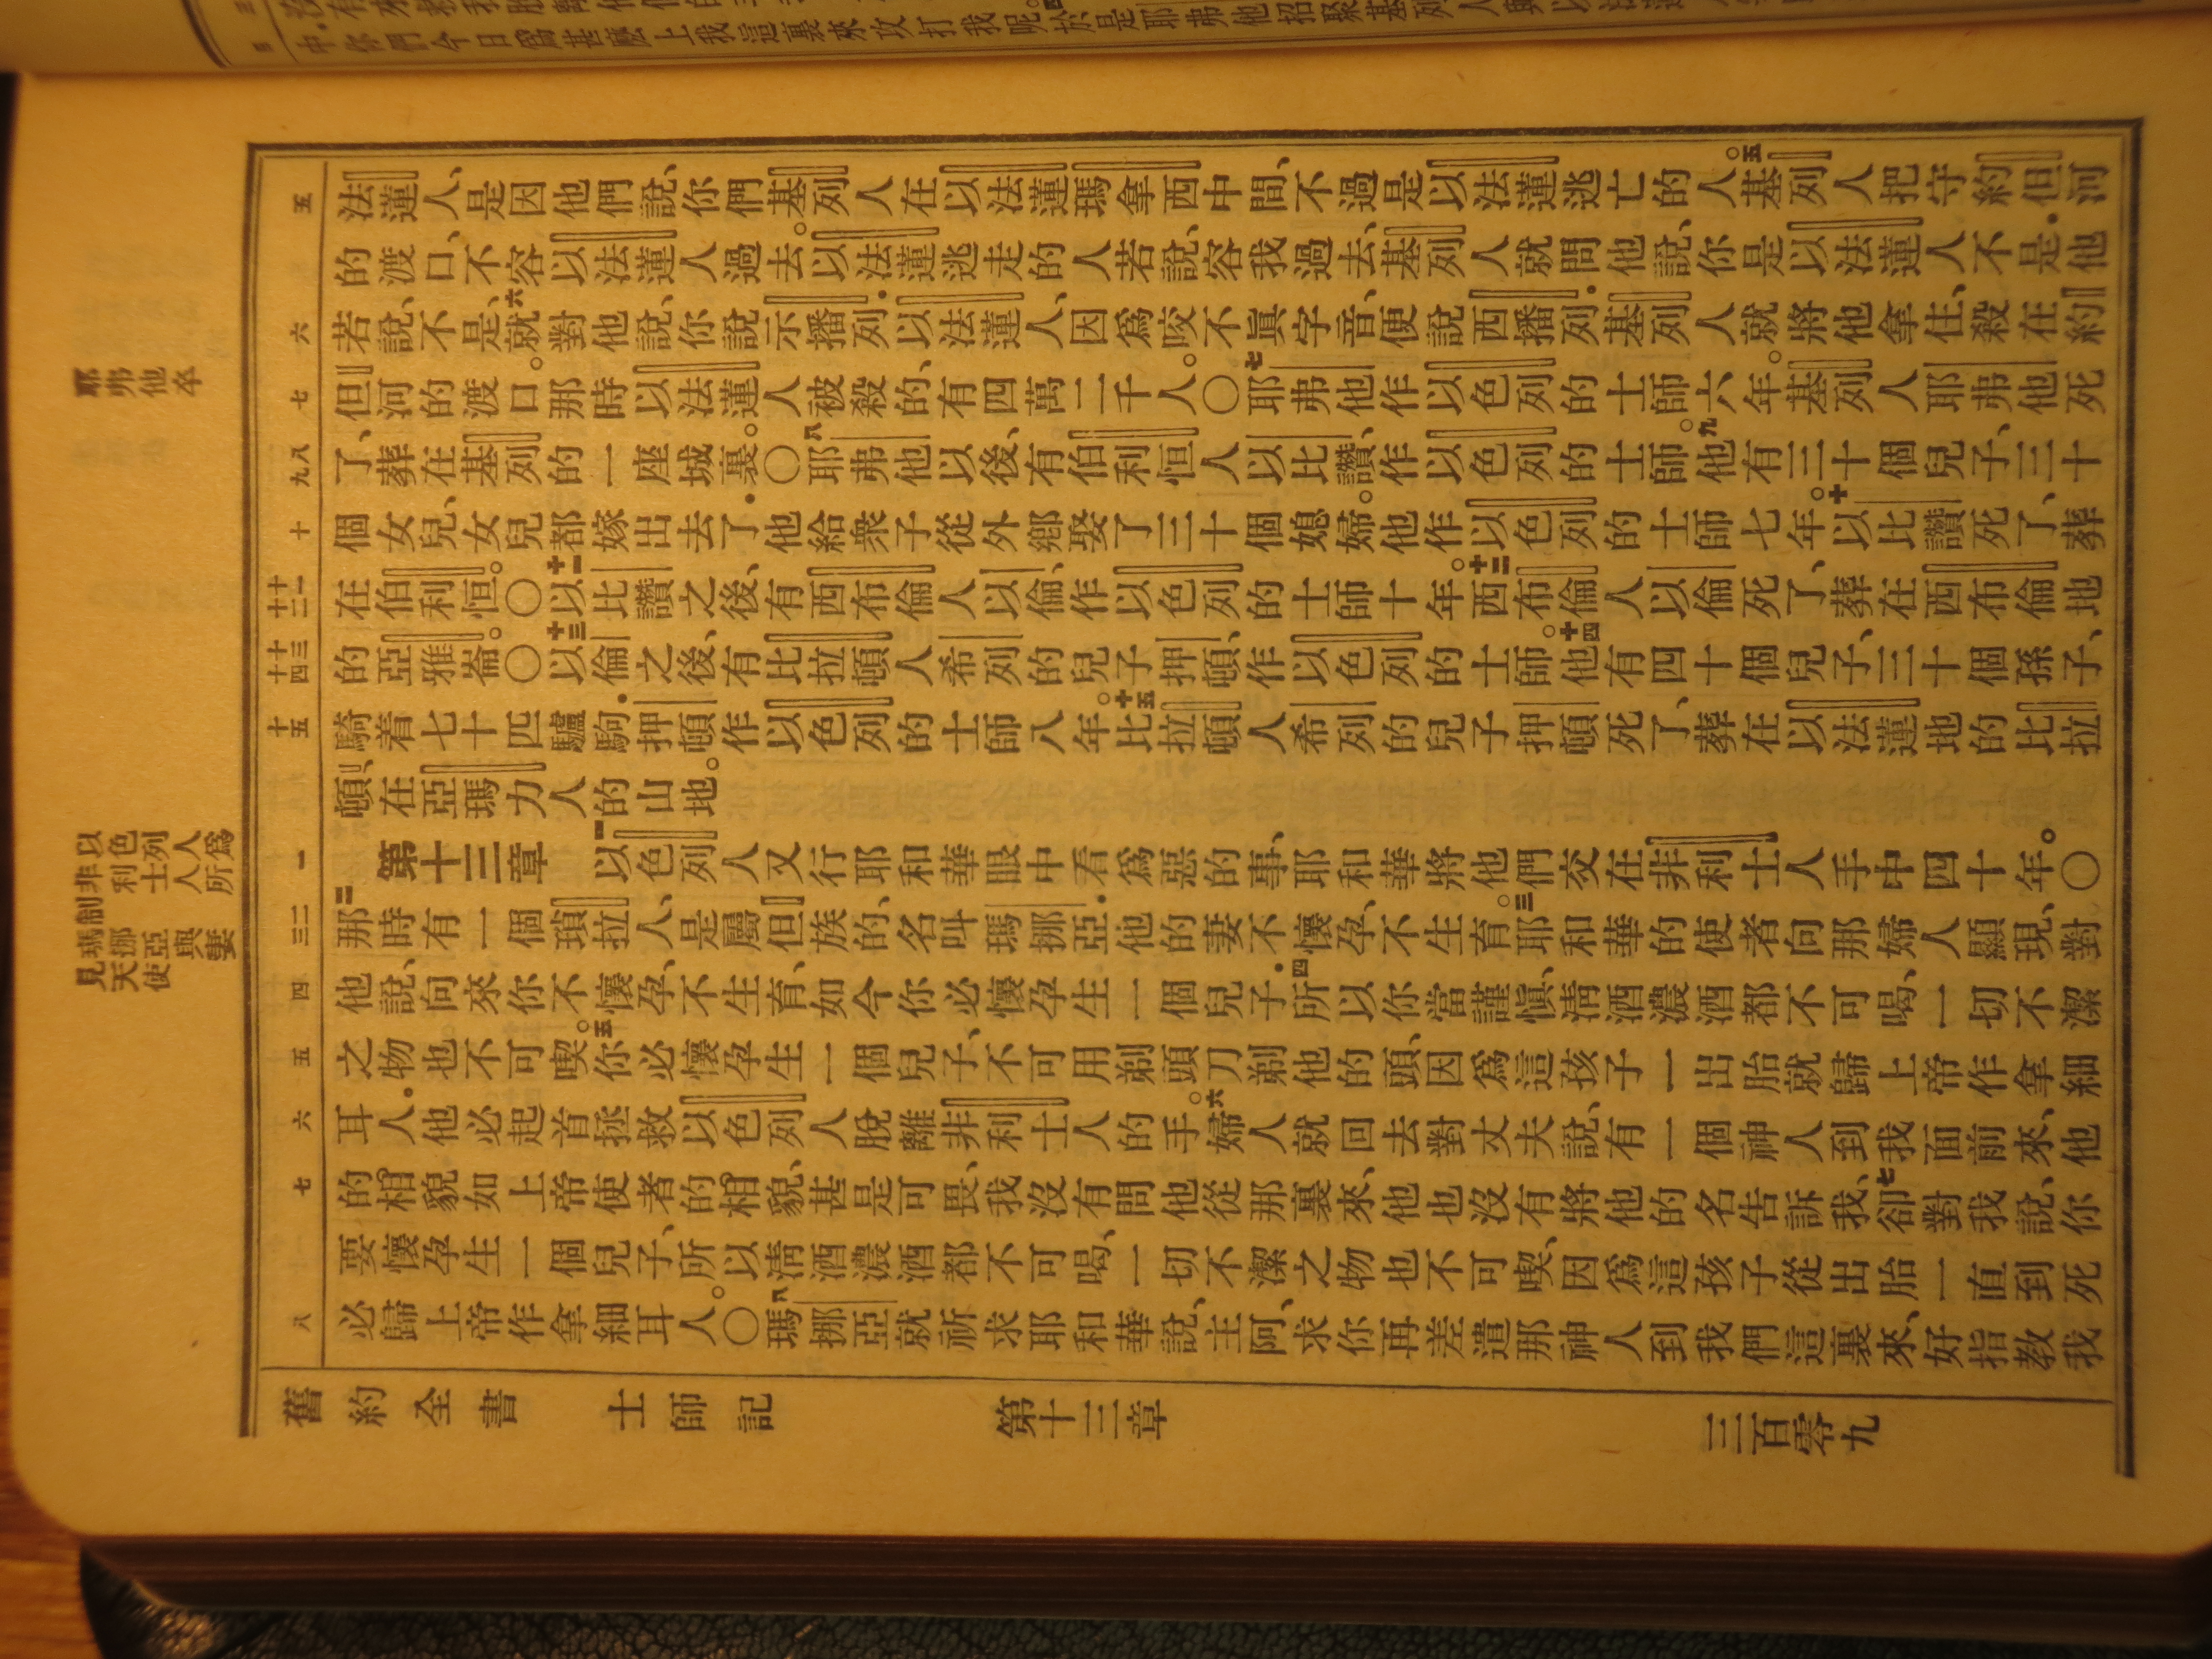 中.你們今日爲甚麽上我這裏來攻打我呢。四於是耶弗他招聚基列人與以法
耶弗他卒
以色列人爲
非利士人所
制
瑪挪亞與妻
見天使
五
六
七
八
九
十
十一
十二
十三
十四
十五
一
二
三
四
五
六
七
八
法蓮人、是因他們說、你們基列人在以法蓮瑪拿西中間、不過是以法蓮逃亡的人。五基列人把守約但河
的渡口、不容以法蓮人過去。以法蓮逃走的人若說、容我過去、基列人就問他說、你是以法蓮人不是.他
若說、不是、六就對他說、你說示播列.以法蓮人、因爲咬不眞字音、便說西播列.基列人就將他拿住、殺在約
但河的渡口。那時以法蓮人被殺的、有四萬二千人。○七耶弗他作以色列的士師六年。基列人耶弗他死
了、葬在基列的一座城裏。○八耶弗他以後、有伯利恒人以比讚、作以色列的士師。九他有三十個兒子、三十
個女兒、女兒都嫁出去了.他給衆子從外鄉娶了三十個媳婦。他作以色列的士師七年。十以比讚死了、葬
在伯利恒。○十一以比讚之後、有西布倫人以倫、作以色列的士師十年。十二西布倫人以倫死了、葬在西布倫地
的亞雅崙。○十三以倫之後、有比拉頓人希列的兒子押頓、作以色列的士師。十四他有四十個兒子、三十個孫子、
騎着七十匹驢駒.押頓作以色列的士師八年。十五比拉頓人希列的兒子押頓死了、葬在以法蓮地的比拉
頓、在亞瑪力人的山地。
第十三章 一以色列人又行耶和華眼中看爲惡的事、耶和華將他們交在非利士人手中四十年。○
二那時有一個瑣拉人、是屬但族的、名叫瑪挪亞.他的妻不懷孕、不生育。三耶和華的使者向那婦人顯現、對
他說、向來你不懷孕、不生育、如今你必懷孕生一個兒子.四所以你當謹愼、淸酒濃酒都不可喝、一切不潔
之物也不可喫。五你必懷孕生一個兒子、不可用剃頭刀剃他的頭、因爲這孩子一出胎就歸上帝作拿細
耳人.他必起首拯救以色列人脫離非利士人的手。六婦人就回去對丈夫說、有一個神人到我面前來、他
的相貌如上帝使者的相貌、甚是可畏、我沒有問他從那裏來、他也沒有將他的名告訴我、七卻對我說、你
要懷孕生一個兒子、所以淸酒濃酒都不可喝、一切不潔之物也不可喫、因爲這孩子從出胎一直到死
必歸上帝作拿細耳人。○八瑪挪亞就祈求耶和華說、主阿、求你再差遣那神人到我們這裏來、好指教我
舊約全書 士師記 第十三章 三百零九